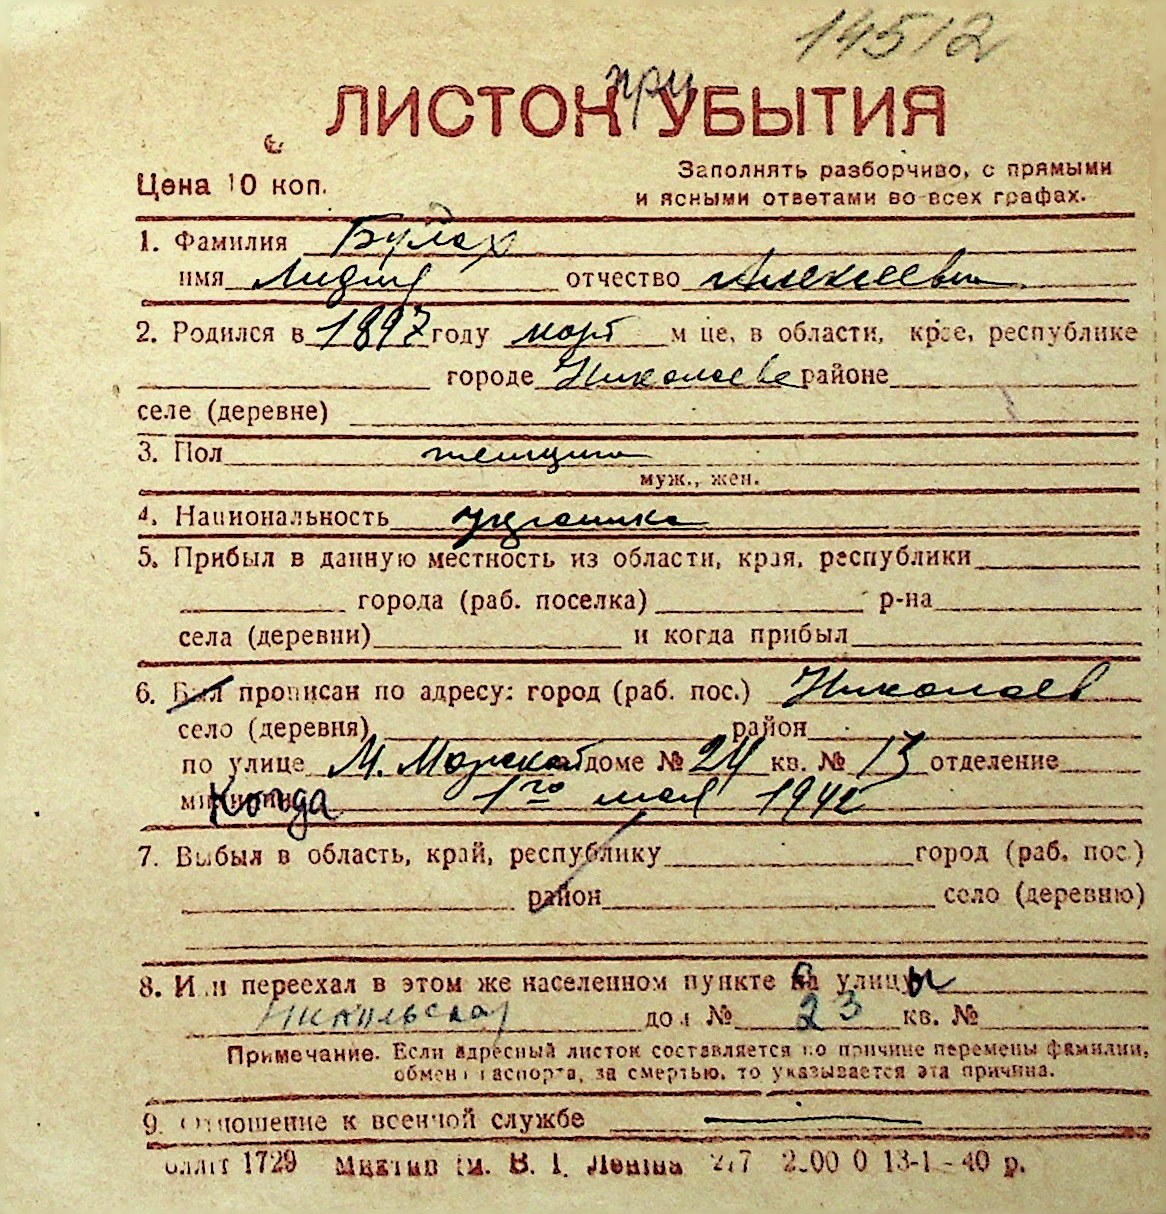 14512
ЛИСТОК при УБЫТИЯ
Цена 10 коп.
Заполнять разборчиво, с прямыми
и ясными ответами во всех графах.
1. Фамилия Булах
имя Лидия отчество Алексеевна
2. Родился в 1897 году март м це, в области, крае, республике
городе Николаеве районе
селе (деревне)
3. Пол женщина
муж., жен.
4. Национальность украинка
5. Прибыл в данную местность из области, края, республики
города (раб. поселка) р-на
села (деревни) и когда прибыл
6. Был прописан по адресу: город (раб. пос.) Николаев
село (деревня) район
по улице М. Морской доме № 24 кв. № 13 отделение
Когда 1го мая 1942
7. Выбыл в область, край, республику город (раб. пос.)
район село (деревню)
8. Или переехал в этом же населенном пункте с улицы
Никольская дом № 23 кв. №
Примечание. Если адресный листок составляется по причине перемены фамилии,
обмена паспорта, за смертью, то указывается эта причина.
9. Отношение к военной службе
1729 им. В. І. Леніна 13-1-40 р.